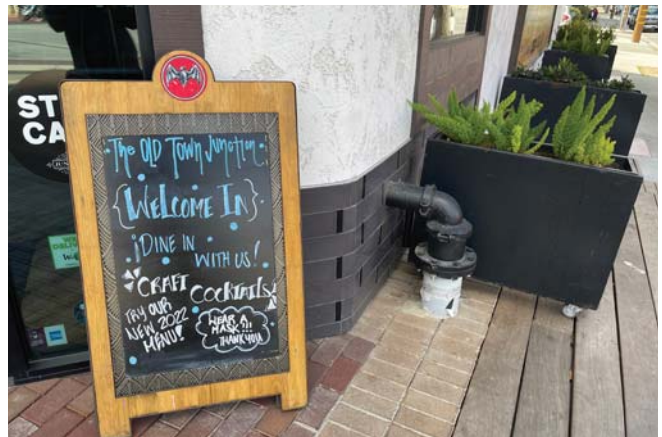 The OLD TOWN JUNCTION
{WELCOME IN}
¡DINE IN
WITH US!
CRAFT
COCKTAILS!
TRY OUR
NEW 2022
MENU!
WEAR A
MASK!!!
THANK YOU
ST
CA